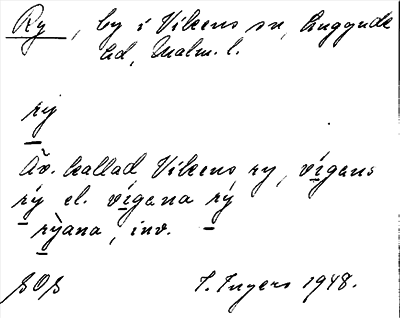 Ry, by i Vikens sn, Luggude
hd, Malm. l.
rý
Äv. kallad Vikens ry, vígens
rý el. vígana rý
rỳana, inv.
SOS I. Ingers 1948.